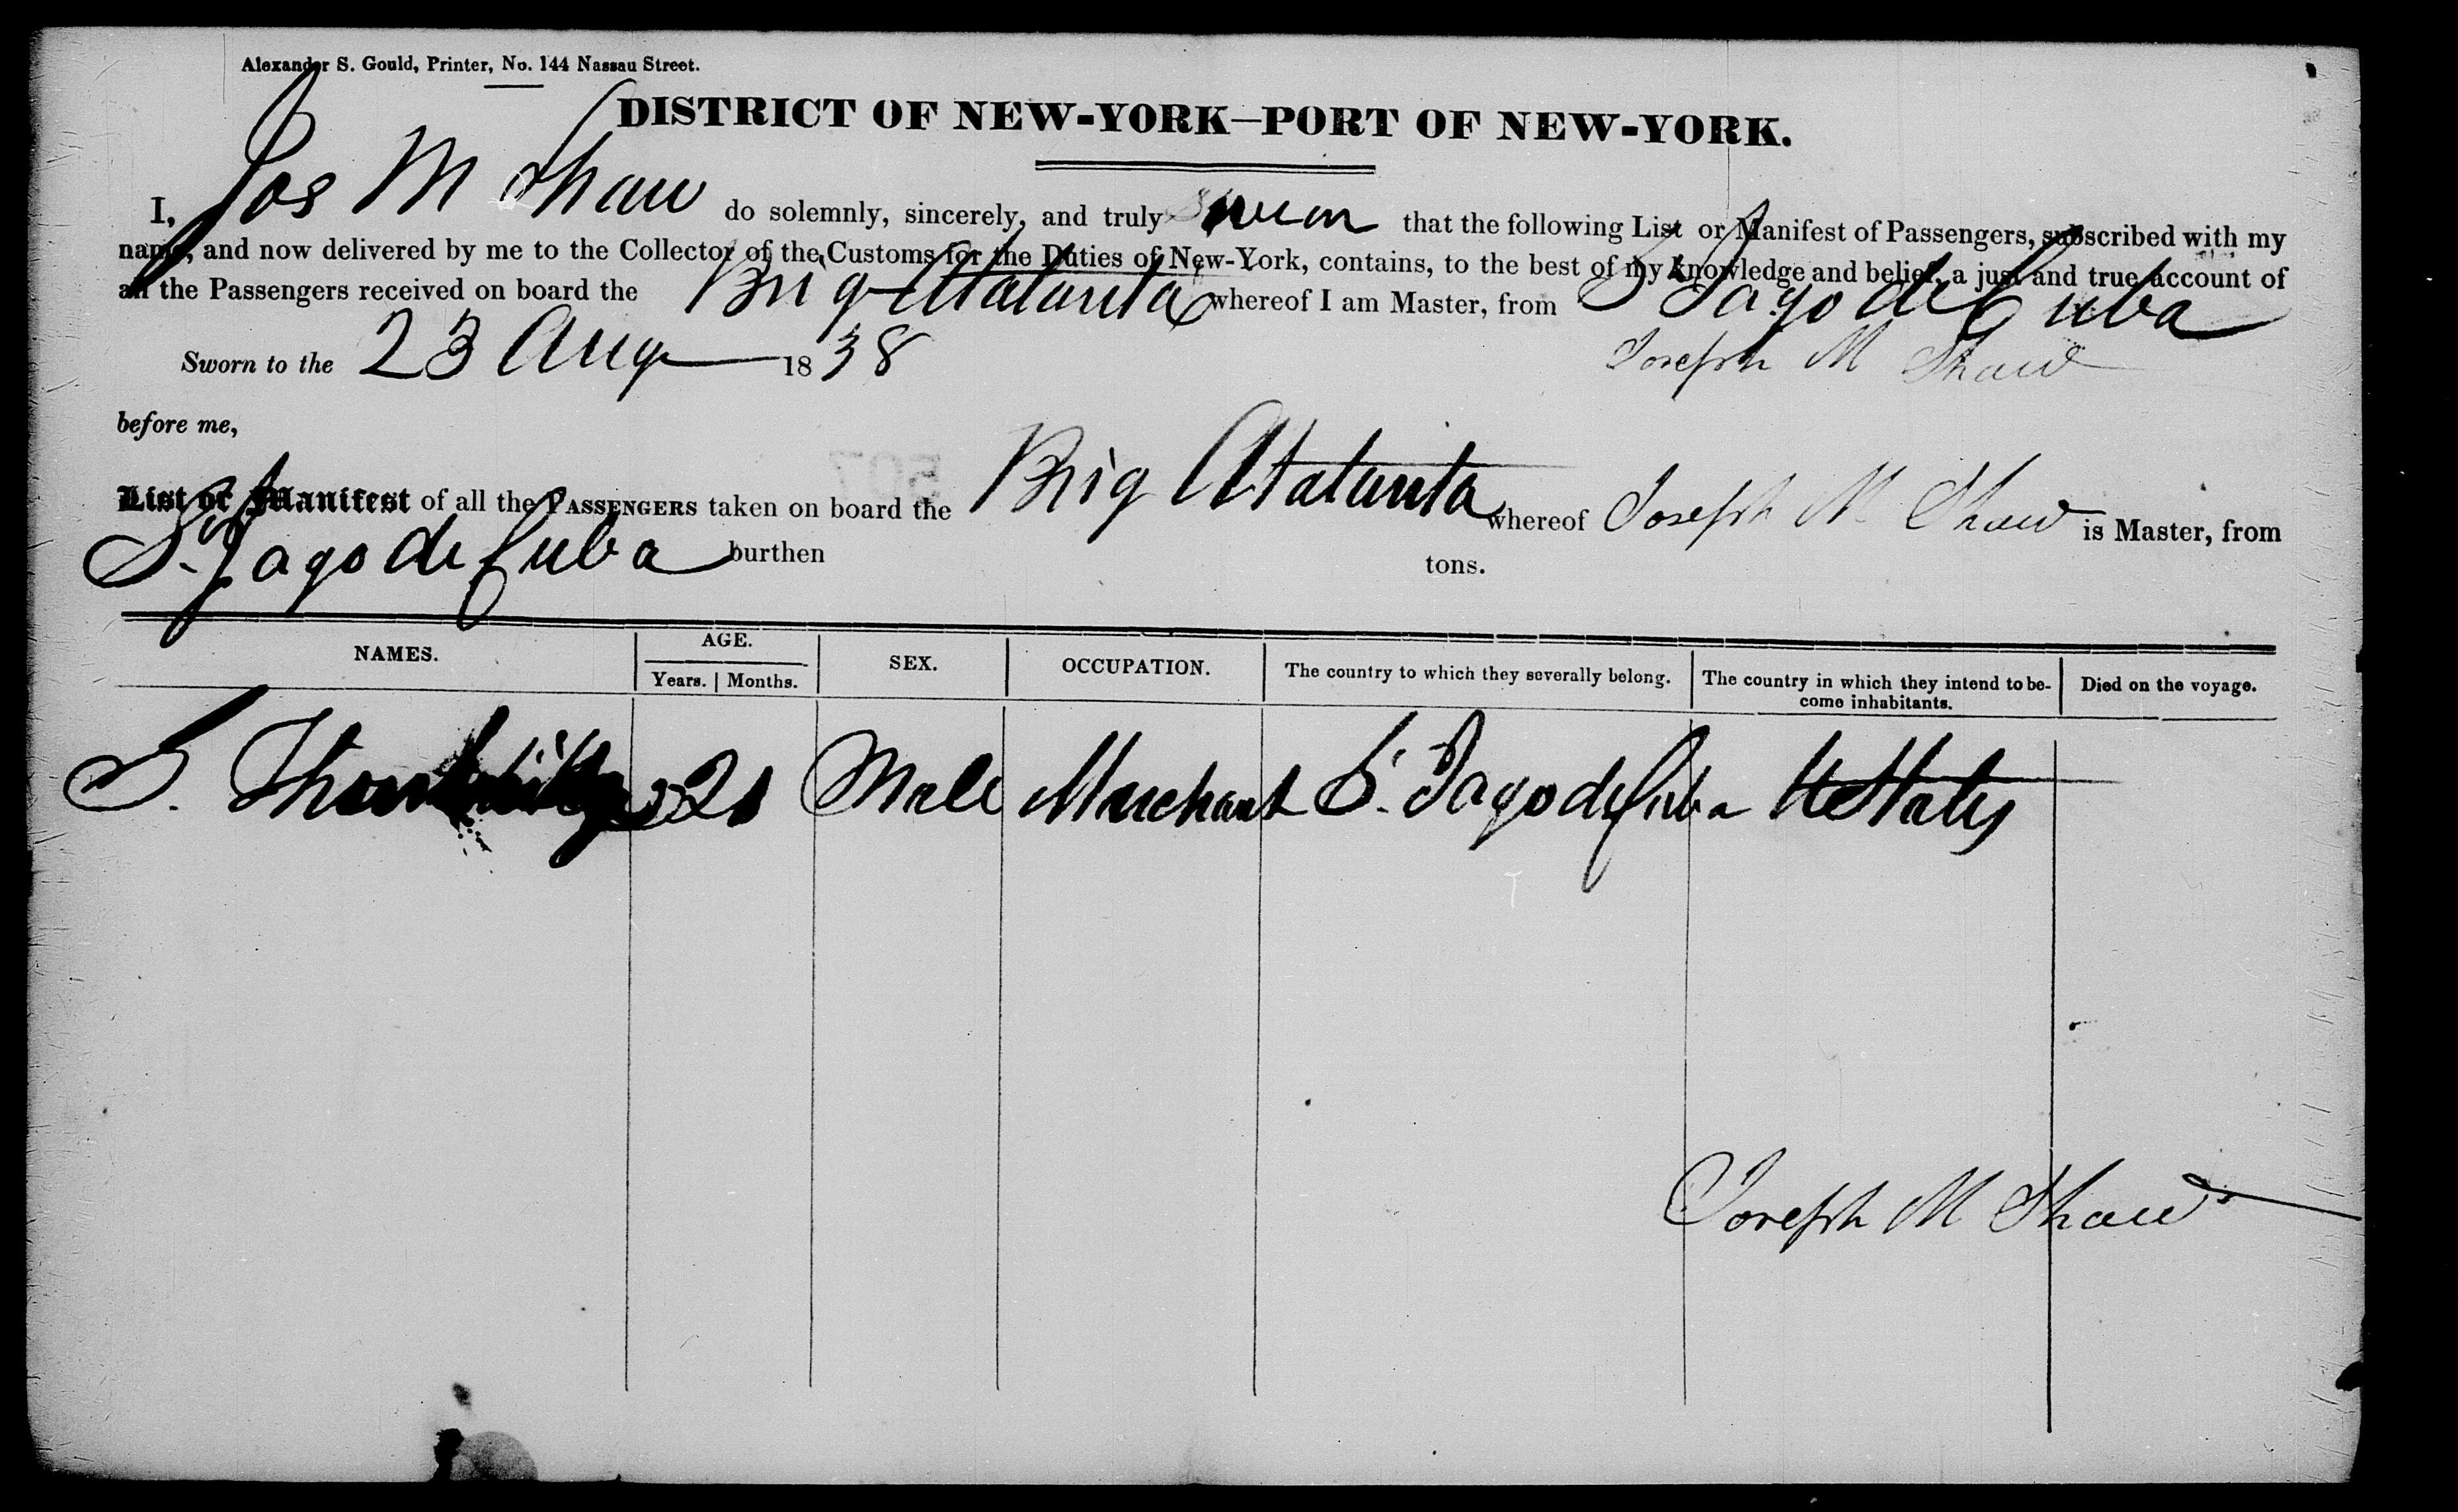 Alexander S. Gould, Printer, No. 144 Nassau Street.
DISTRICT OF NEW-YORK—PORT OF NEW-YORK.
I, Jos M Shaw do solemnly, sincerely, and truly swear that the following List or Manifest of Passengers, subscribed with my
name, and now delivered by me to the Collector of the Customs for the Duties of New-York, contains, to the best of my knowledge and belief, a just and true account of
all the Passengers received on board the Brig Atalanta whereof I am Master, from St Jago de Cuba
Sworn to the 23 Aug 1838 Joseph M Shaw
before me,
List or Manifest of all the PASSENGERS taken on board the Brig Atalanta whereof Joseph M Shaw is Master, from
St. Jago de Cuba burthen tons.
NAMES. AGE. SEX. OCCUPATION. The country to which they severally belong. The country in which they intend to be-come inhabitants. Died on the voyage.
Years. Months.
S. 21 Male Merchant S. Jago de Cuba U States
Joseph M Shaw